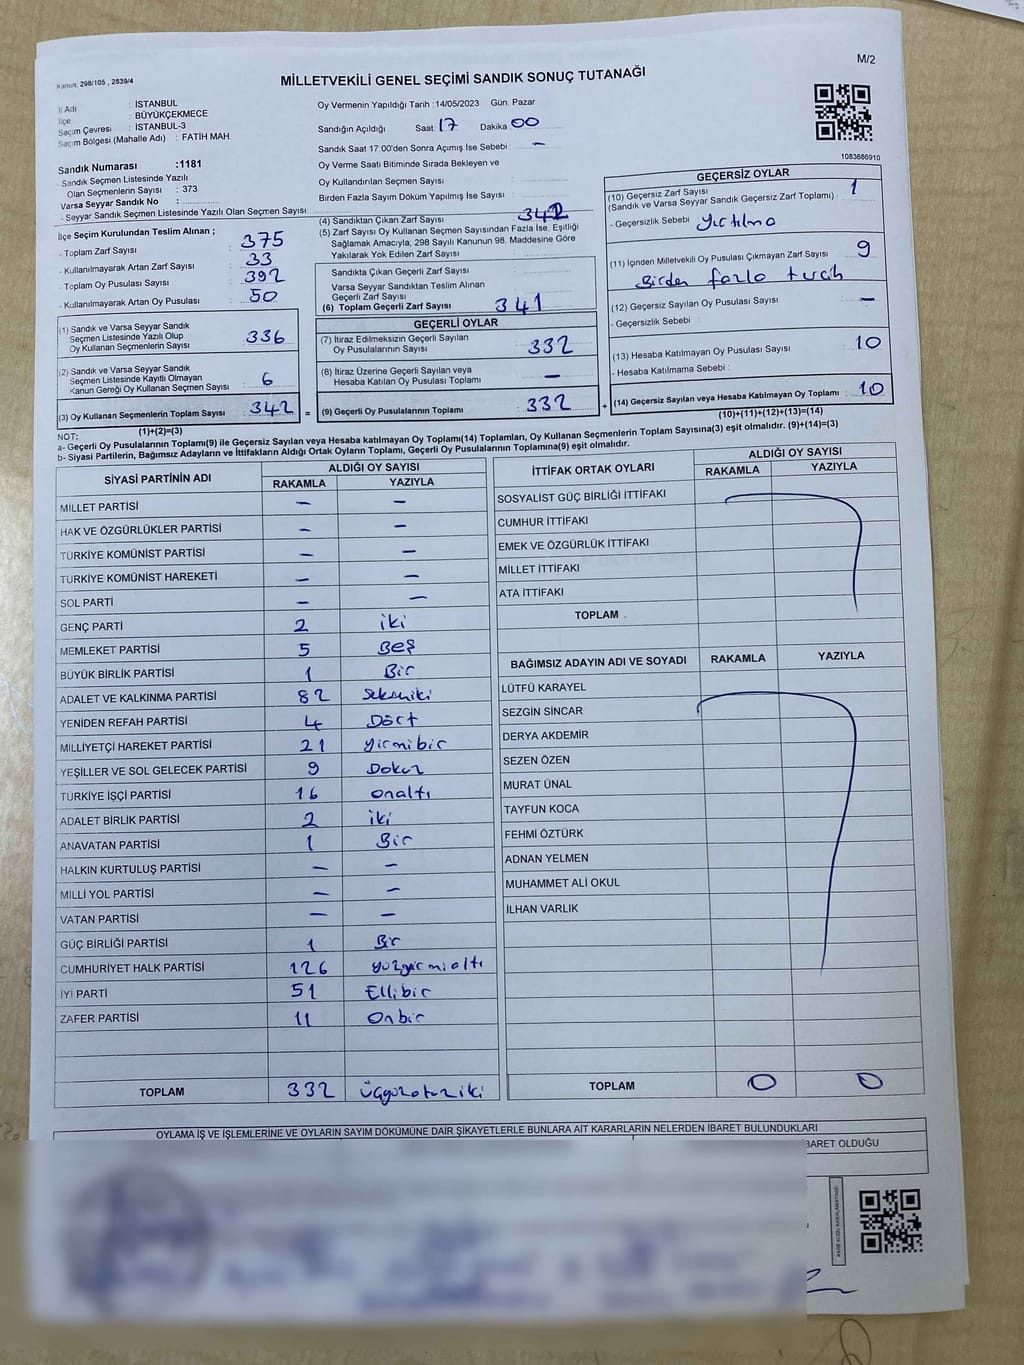 M/2
Kanun, 298/105 , 2839/4
MİLLETVEKİLİ GENEL SEÇİMİ SANDIK SONUÇ TUTANAĞI
İl Adı : İSTANBUL
İlçe : BÜYÜKÇEKMECE
Seçim Çevresi : İSTANBUL-3
Seçim Bölgesi (Mahalle Adı) : FATİH MAH.
Sandık Numarası :1181
- Sandık Seçmen Listesinde Yazılı
Olan Seçmenlerin Sayısı : 373
Varsa Seyyar Sandık No :
- Seyyar Sandık Seçmen Listesinde Yazılı Olan Seçmen Sayısı
İlçe Seçim Kurulundan Teslim Alınan ;
- Toplam Zarf Sayısı : 375
- Kullanılmayarak Artan Zarf Sayısı : 33
- Toplam Oy Pusulası Sayısı : 392
- Kullanılmayarak Artan Oy Pusulası : 50
(1) Sandık ve Varsa Seyyar Sandık
Seçmen Listesinde Yazılı Olup
Oy Kullanan Seçmenlerin Sayısı : 336
(2) Sandık ve Varsa Seyyar Sandık
Seçmen Listesinde Kayıtlı Olmayan
Kanun Gereği Oy Kullanan Seçmen Sayısı : 6
(3) Oy Kullanan Seçmenlerin Toplam Sayısı : 342 =
(1)+(2)=(3)
Oy Vermenin Yapıldığı Tarih :14/05/2023 Gün: Pazar
Sandığın Açıldığı Saat 17 Dakika 00
Sandık Saat 17:00'den Sonra Açımış İse Sebebi : –
Oy Verme Saati Bitiminde Sırada Bekleyen ve
Oy Kullandırılan Seçmen Sayısı :
Birden Fazla Sayım Döküm Yapılmış İse Sayısı :
(4) Sandıktan Çıkan Zarf Sayısı : 342
(5) Zarf Sayısı Oy Kullanan Seçmen Sayısından Fazla İse, Eşitliği
Sağlamak Amacıyla, 298 Sayılı Kanunun 98. Maddesine Göre
Yakılarak Yok Edilen Zarf Sayısı :
Sandıkta Çıkan Geçerli Zarf Sayısı :
Varsa Seyyar Sandıktan Teslim Alınan
Geçerli Zarf Sayısı :
(6) Toplam Geçerli Zarf Sayısı : 341
GEÇERLİ OYLAR
(7) İtiraz Edilmeksizin Geçerli Sayılan
Oy Pusulalarının Sayısı : 332
(8) İtiraz Üzerine Geçerli Sayılan veya
Hesaba Katılan Oy Pusulası Toplamı : –
(9) Geçerli Oy Pusulalarının Toplamı : 332 +
1083686910
GEÇERSİZ OYLAR
(10) Geçersiz Zarf Sayısı
(Sandık ve Varsa Seyyar Sandık Geçersiz Zarf Toplamı) : 1
- Geçersizlik Sebebi : Yırtılma
(11) İçinden Milletvekili Oy Pusulası Çıkmayan Zarf Sayısı : 9
Birden fazla tercih
(12) Geçersiz Sayılan Oy Pusulası Sayısı : –
- Geçersizlik Sebebi :
(13) Hesaba Katılmayan Oy Pusulası Sayısı : 10
- Hesaba Katılmama Sebebi :
(14) Geçersiz Sayılan veya Hesaba Katılmayan Oy Toplamı : 10
(10)+(11)+(12)+(13)=(14)
NOT:
a- Geçerli Oy Pusulalarının Toplamı(9) ile Geçersiz Sayılan veya Hesaba katılmayan Oy Toplamı(14) Toplamları, Oy Kullanan Seçmenlerin Toplam Sayısına(3) eşit olmalıdır. (9)+(14)=(3)
b- Siyasi Partilerin, Bağımsız Adayların ve İttifakların Aldığı Ortak Oyların Toplamı, Geçerli Oy Pusulalarının Toplamına(9) eşit olmalıdır.
SİYASİ PARTİNİN ADI ALDIĞI OY SAYISI
RAKAMLA YAZIYLA
MİLLET PARTİSİ – –
HAK VE ÖZGÜRLÜKLER PARTİSİ – –
TÜRKİYE KOMÜNİST PARTİSİ – –
TÜRKİYE KOMÜNİST HAREKETİ – –
SOL PARTİ – –
GENÇ PARTİ 2 iki
MEMLEKET PARTİSİ 5 Beş
BÜYÜK BİRLİK PARTİSİ 1 Bir
ADALET VE KALKINMA PARTİSİ 82 Sekseniki
YENİDEN REFAH PARTİSİ 4 Dört
MİLLİYETÇİ HAREKET PARTİSİ 21 yirmibir
YEŞİLLER VE SOL GELECEK PARTİSİ 9 Dokuz
TÜRKİYE İŞÇİ PARTİSİ 16 onaltı
ADALET BİRLİK PARTİSİ 2 iki
ANAVATAN PARTİSİ 1 Bir
HALKIN KURTULUŞ PARTİSİ – –
MİLLİ YOL PARTİSİ – –
VATAN PARTİSİ – –
GÜÇ BİRLİĞİ PARTİSİ 1 Bir
CUMHURİYET HALK PARTİSİ 126 yüzyirmialtı
İYİ PARTİ 51 Ellibir
ZAFER PARTİSİ 11 Onbir
TOPLAM 332 Üçyüzotuziki
İTTİFAK ORTAK OYLARI ALDIĞI OY SAYISI
RAKAMLA YAZIYLA
SOSYALİST GÜÇ BİRLİĞİ İTTİFAKI
CUMHUR İTTİFAKI
EMEK VE ÖZGÜRLÜK İTTİFAKI
MİLLET İTTİFAKI
ATA İTTİFAKI
TOPLAM
BAĞIMSIZ ADAYIN ADI VE SOYADI RAKAMLA YAZIYLA
LÜTFÜ KARAYEL
SEZGİN SİNCAR
DERYA AKDEMİR
SEZEN ÖZEN
MURAT ÜNAL
TAYFUN KOCA
FEHMİ ÖZTÜRK
ADNAN YELMEN
MUHAMMET ALİ OKUL
İLHAN VARLIK
TOPLAM 0 0
OYLAMA İŞ VE İŞLEMLERİNE VE OYLARIN SAYIM DÖKÜMÜNE DAİR ŞİKAYETLERLE BUNLARA AİT KARARLARIN NELERDEN İBARET BULUNDUKLARI
BARET OLDUĞU